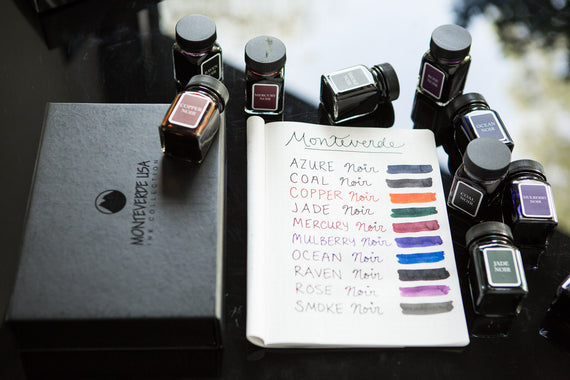 COPPER
NOIR
MERCURY
NOIR
NOIR
ROSE
NOIR
OCEAN
NOIR
COAL
NOIR
MULBERRY
NOIR
JADE
NOIR
MONTEVERDE USA
INK COLLECTION
Monteverde
AZURE Noir
COAL Noir
COPPER Noir
JADE Noir
MERCURY Noir
MULBERRY Noir
OCEAN Noir
RAVEN Noir
ROSE Noir
SMOKE Noir